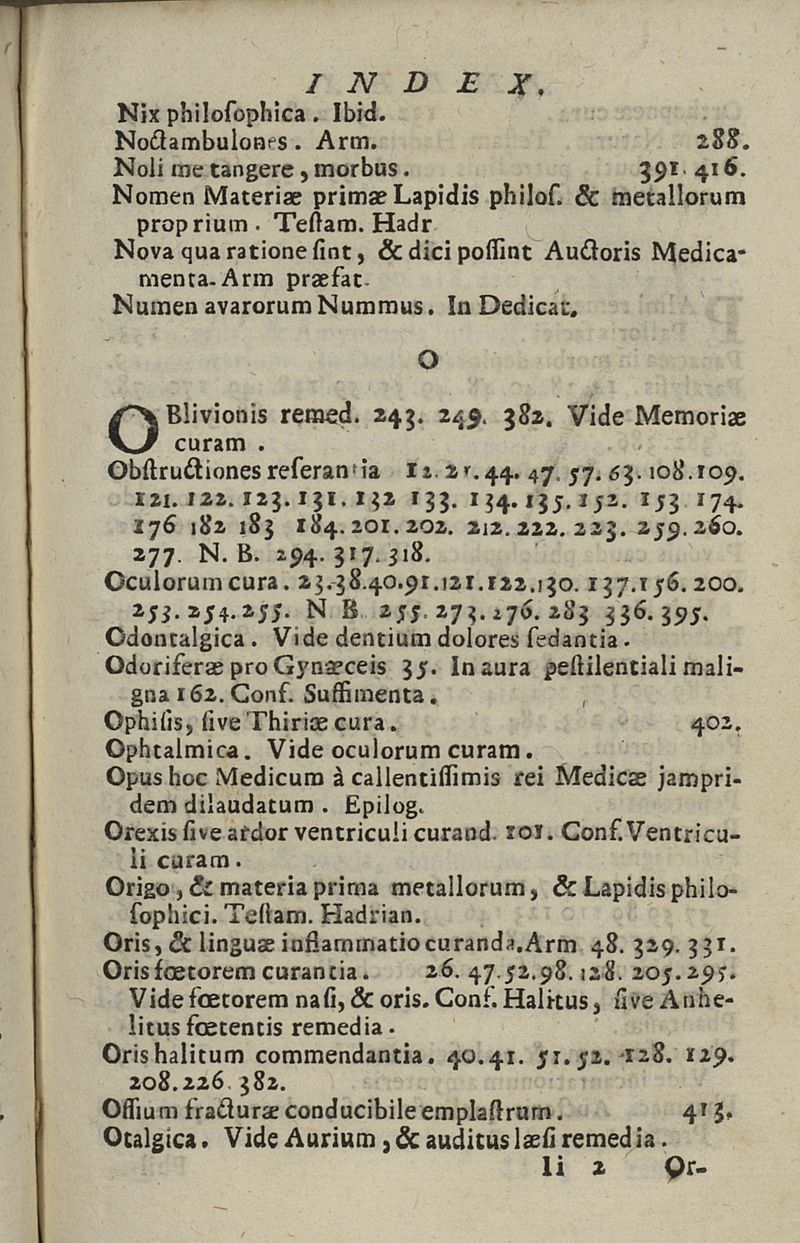 INDEX.
Nix philoſophica. Ibid.
Noctambulones. Arm. 288.
Noli me tangere, morbus. 391. 416.
Nomen Materiæ primæ Lapidis philoſ. & metallorum
proprium. Teſtam. Hadr
Nova qua ratione ſint, & dici poſſint Auctoris Medica-
menta. Arm præfat.
Numen avarorum Nummus. In Dedicat.
O
OBlivionis remed. 243. 249. 382. Vide Memoriæ
curam.
Obſtructiones referantia 12. 21. 44. 47. 57. 63. 108. 109.
121. 122. 123. 131. 132 133. 134. 135. 152. 153 174.
176 182 183 184. 201. 202. 212. 222. 223. 259. 260.
277. N. B. 294. 317. 318.
Oculorum cura. 23. 38. 40. 91. 121. 122. 130. 137. 156. 200.
253. 254. 255. N. B. 255. 273. 276. 283 336. 395.
Odontalgica. Vide dentium dolores ſedantia.
Odoriferæ pro Gynæceis 35. In aura peſtilentiali mali-
gna 162. Conf. Suffimenta.
Ophiſis, ſive Thiriæ cura. 402.
Ophtalmica. Vide oculorum curam.
Opus hoc Medicum à callentiſſimis rei Medicæ jampri-
dem dilaudatum. Epilog.
Orexis ſive ardor ventriculi curand. 101. Conf. Ventricu-
li curam.
Origo, & materia prima metallorum, & Lapidis philo-
ſophici. Teſtam. Hadrian.
Oris, & linguæ inflammatio curanda. Arm 48. 329. 331.
Oris fœtorem curantia. 26. 47. 52. 98. 128. 205. 295.
Vide fœtorem naſi, & oris. Conf. Halitus, ſive Anhe-
litus fœtentis remedia.
Oris halitum commendantia. 40. 41. 51. 52. 128. 129.
208. 226. 382.
Oſſium fracturæ conducibile emplaſtrum. 413.
Otalgica. Vide Aurium, & auditus læſi remedia.
Ii 2 Or-